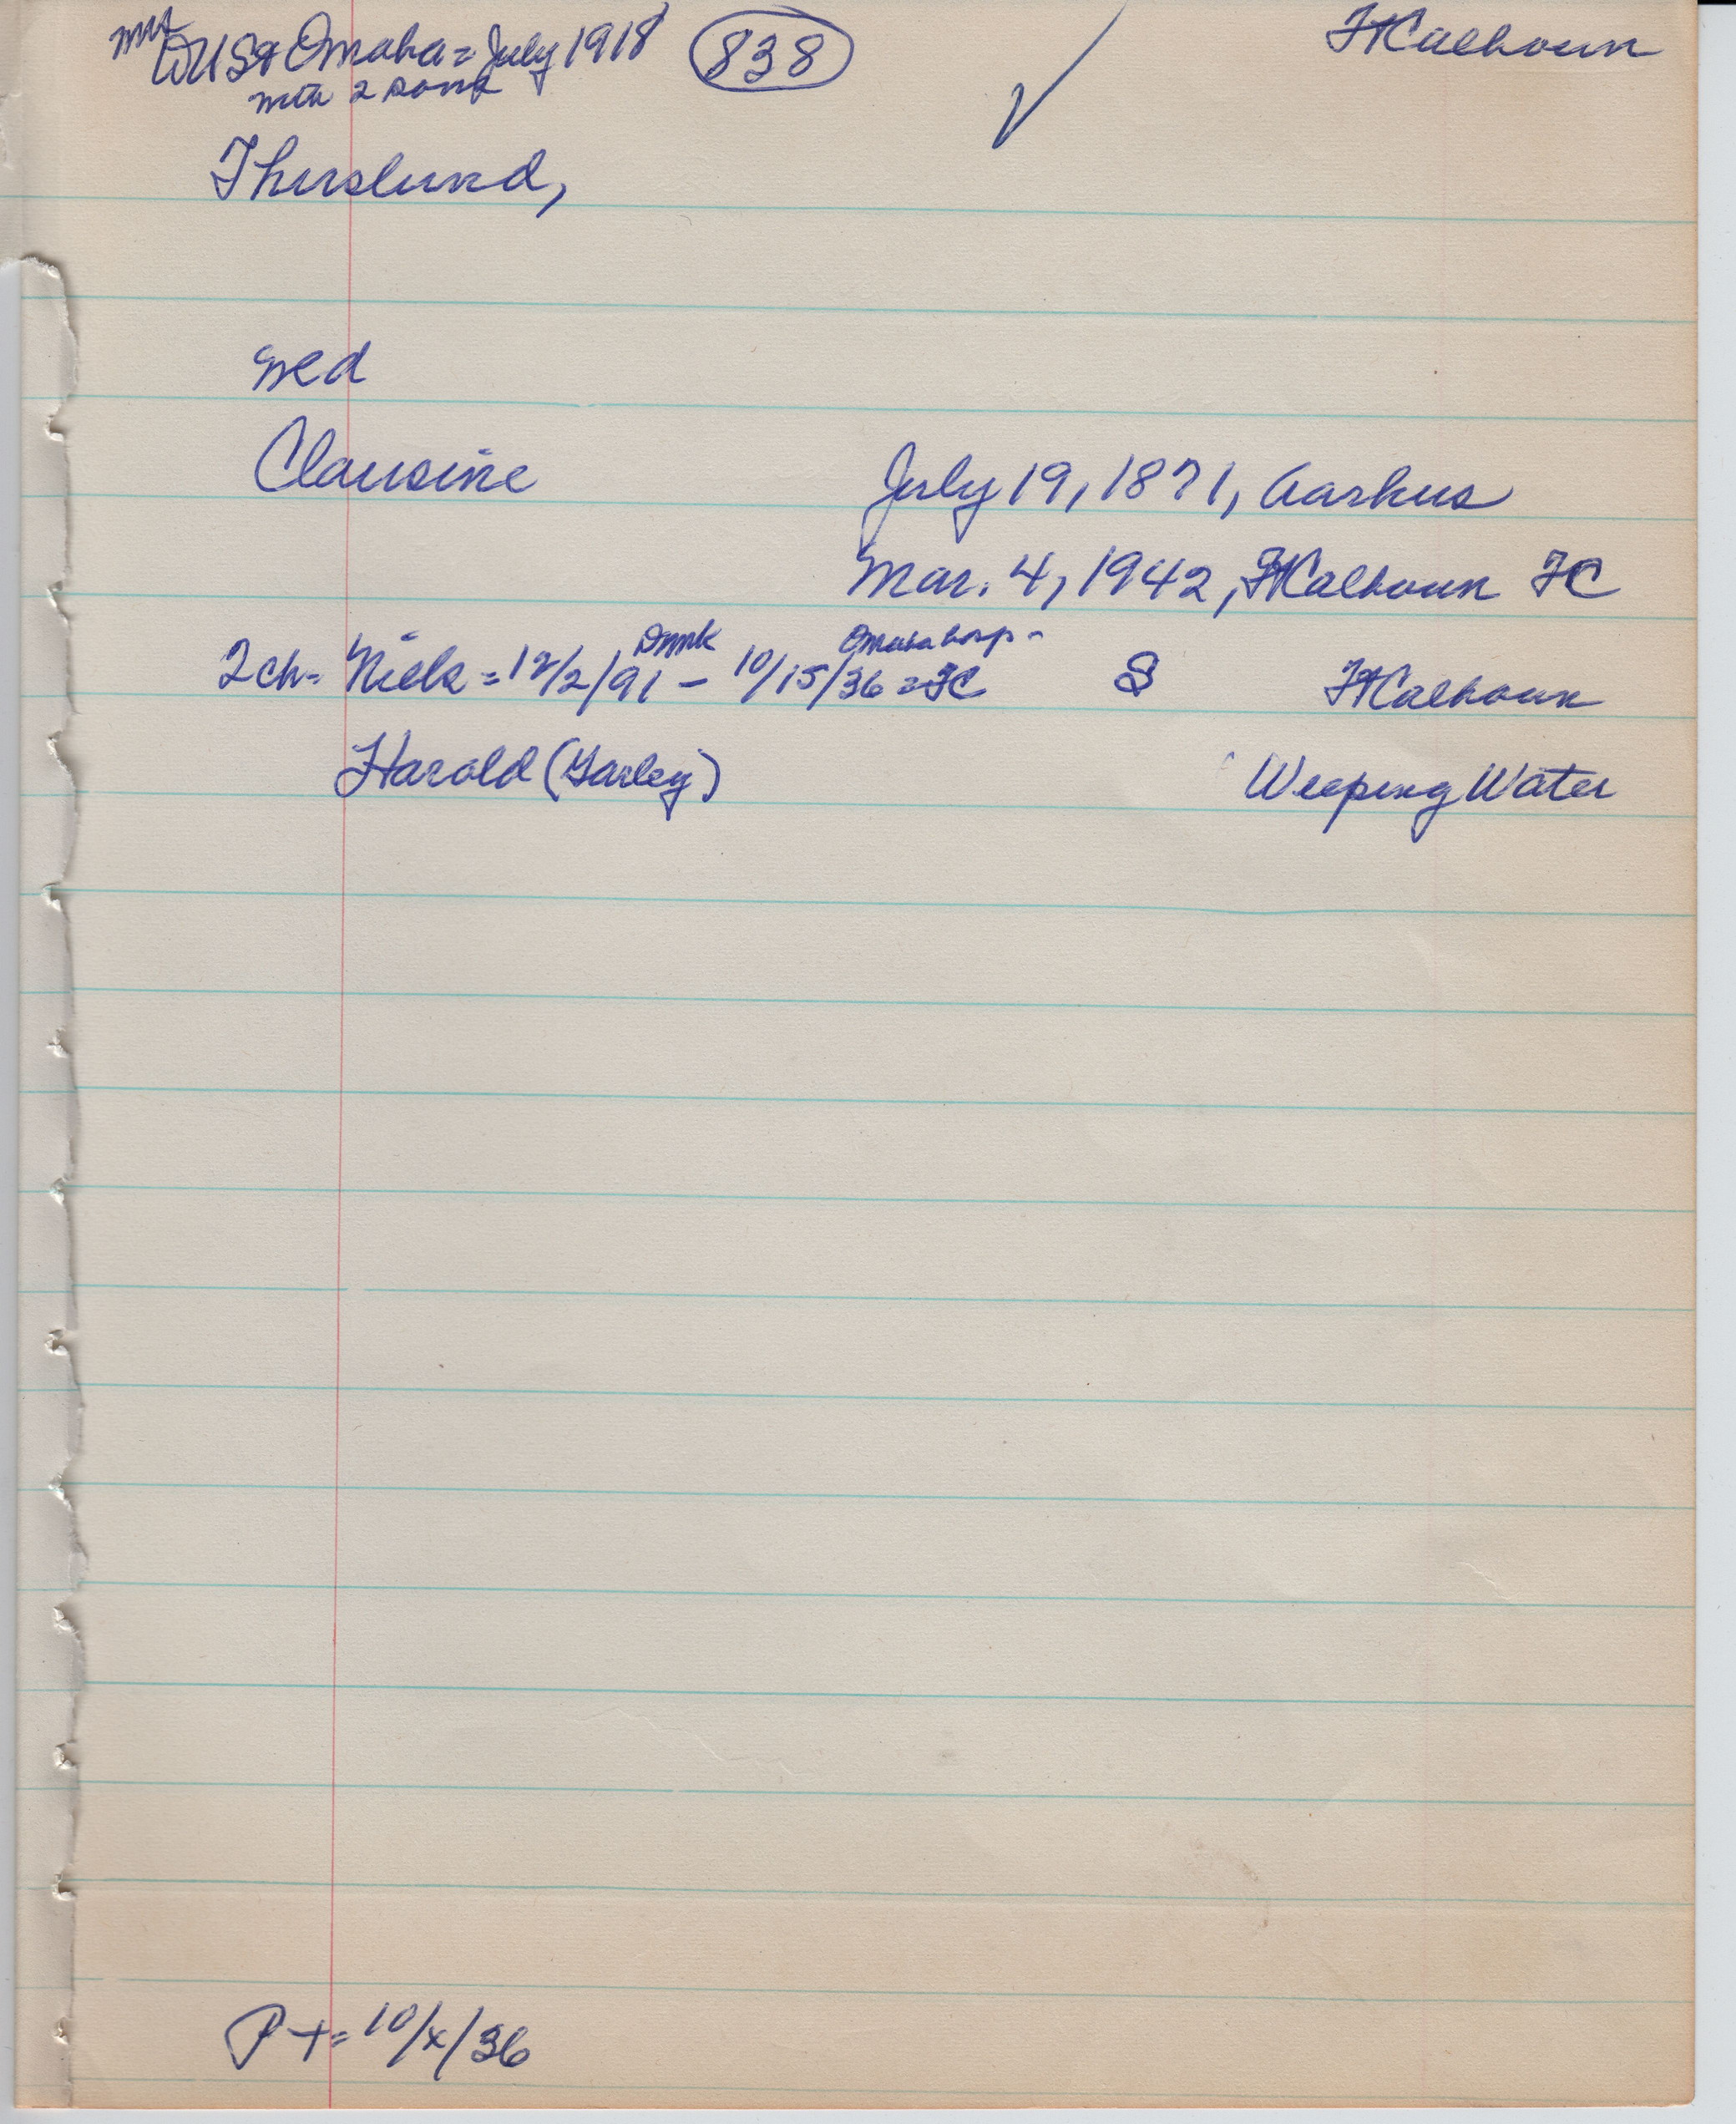 USA Omaha = July 1918 838 FtCalhoun
with 2 sons
Thurslund,
wed
Clausine July 19, 1871, Aarhus
Mar. 4, 1942, FtCalhoun FC
Dnmk Omaha hosp-
2 ch- Niels = 12/2/91 - 10/15/36 = FC S FtCalhoun
Harold (Garley) Weeping Water
P += 10/x/36